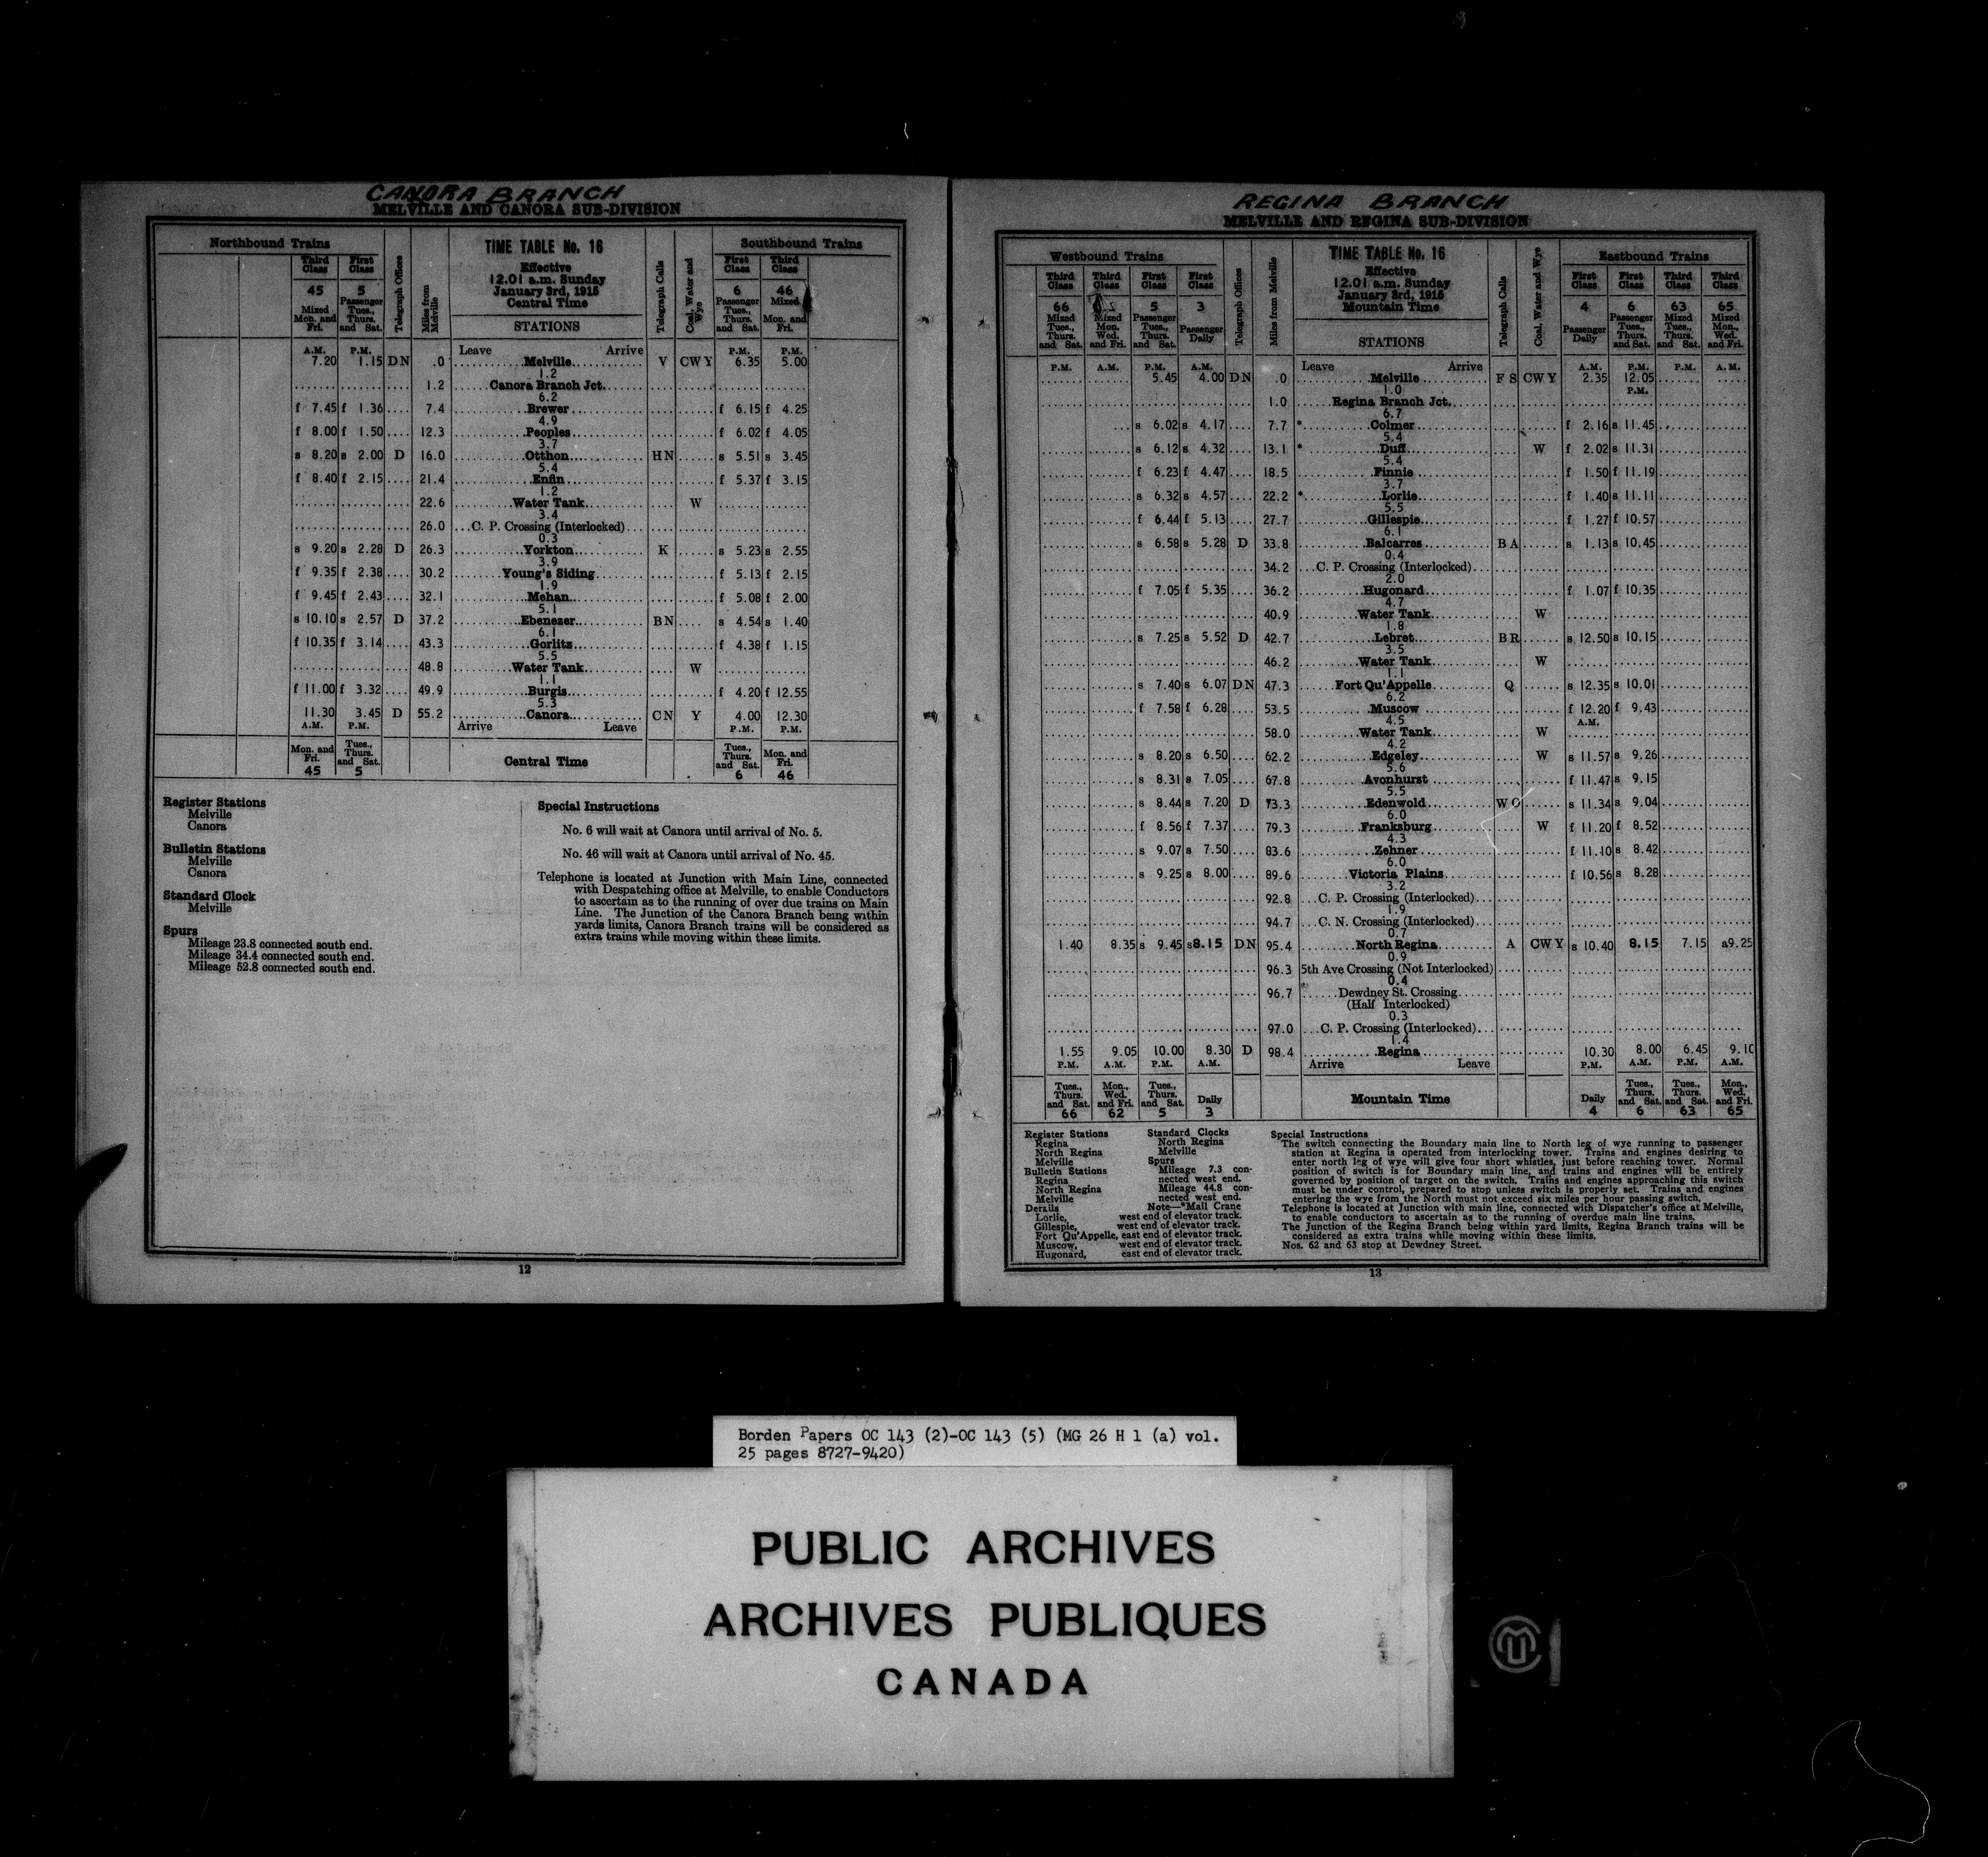 CANORA BRANCH
MELVILLE AND CANORA SUB-DIVISION
Northbound Trains
TIME TABLE No. 16
Southbound Trains
Third Class First Class Telegraph Offices Miles from Melville Effective 12.01 a.m. Sunday January 3rd, 1915 Central Time Telegraph Calls Coal, Water and Wye First Class Third Class
45 5 6 46
Mixed Mon. and Fri. Passenger Tues., Thurs. and Sat. STATIONS Passenger Tues., Thurs. and Sat. Mixed Mon. and Fri.
A.M. P.M. Leave Arrive P.M. P.M.
7.20 1.15 DN .0 Melville V CWY 6.35 5.00
1.2
1.2 Canora Branch Jct.
6.2
f 7.45 f 1.36 7.4 Brewer f 6.15 f 4.25
4.9
f 8.00 f 1.50 12.3 Peoples f 6.02 f 4.05
3.7
s 8.20 s 2.00 D 16.0 Otthon HN s 5.51 s 3.45
5.4
f 8.40 f 2.15 21.4 Enfin f 5.37 f 3.15
1.2
22.6 Water Tank W
3.4
26.0 C. P. Crossing (Interlocked)
0.3
s 9.20 s 2.28 D 26.3 Yorkton K s 5.23 s 2.55
3.9
f 9.35 f 2.38 30.2 Young's Siding f 5.13 f 2.15
1.9
f 9.45 f 2.43 32.1 Mehan f 5.08 f 2.00
5.1
s 10.10 s 2.57 D 37.2 Ebenezer BN s 4.54 s 1.40
6.1
f 10.35 f 3.14 43.3 Gorlitz f 4.38 f 1.15
5.5
48.8 Water Tank W
1.1
f 11.00 f 3.32 49.9 Burgis f 4.20 f 12.55
5.3
11.30 3.45 D 55.2 Canora CN Y 4.00 12.30
A.M. P.M. Arrive Leave P.M. P.M.
Mon. and Fri. Tues., Thurs. and Sat. Central Time Tues., Thurs. and Sat. Mon. and Fri.
45 5 6 46
Register Stations
Melville
Canora
Bulletin Stations
Melville
Canora
Standard Clock
Melville
Spurs
Mileage 23.8 connected south end.
Mileage 34.4 connected south end.
Mileage 52.8 connected south end.
Special Instructions
No. 6 will wait at Canora until arrival of No. 5.
No. 46 will wait at Canora until arrival of No. 45.
Telephone is located at Junction with Main Line, connected
with Despatching office at Melville, to enable Conductors
to ascertain as to the running of over due trains on Main
Line. The Junction of the Canora Branch being within
yards limits, Canora Branch trains will be considered as
extra trains while moving within these limits.
12
REGINA BRANCH
MELVILLE AND REGINA SUB-DIVISION
Westbound Trains
TIME TABLE No. 16
Eastbound Trains
Third Class Third Class First Class First Class Telegraph Offices Miles from Melville Effective 12.01 a.m. Sunday January 3rd, 1915 Mountain Time Telegraph Calls Coal, Water and Wye First Class First Class Third Class Third Class
66 5 3 4 6 63 65
Mixed Tues., Thurs. and Sat. Mixed Mon. Wed. and Fri. Passenger Tues., Thurs. and Sat. Passenger Daily STATIONS Passenger Daily Passenger Tues., Thurs. and Sat. Mixed Tues., Thurs. and Sat. Mixed Mon., Wed. and Fri.
P.M. A.M. P.M. A.M. Leave Arrive A.M. P.M. P.M. A.M.
5.45 4.00 DN .0 Melville FS CWY 2.35 12.05
1.0 P.M.
1.0 Regina Branch Jct.
6.7
s 6.02 s 4.17 7.7 * Colmer f 2.16 s 11.45
5.4
s 6.12 s 4.32 13.1 * Duff W f 2.02 s 11.31
5.4
f 6.23 f 4.47 18.5 Finnie f 1.50 f 11.19
3.7
s 6.32 s 4.57 22.2 * Lorlie f 1.40 s 11.11
5.5
f 6.44 f 5.13 27.7 Gillespie f 1.27 f 10.57
6.1
s 6.58 s 5.28 D 33.8 Balcarres BA s 1.13 s 10.45
0.4
34.2 C. P. Crossing (Interlocked)
2.0
f 7.05 f 5.35 36.2 Hugonard f 1.07 f 10.35
4.7
40.9 Water Tank W
1.8
s 7.25 s 5.52 D 42.7 Lebret BR s 12.50 s 10.15
3.5
46.2 Water Tank W
1.1
s 7.40 s 6.07 DN 47.3 Fort Qu'Appelle Q s 12.35 s 10.01
6.2
f 7.58 f 6.28 53.5 Muscow f 12.20 f 9.43
4.5 A.M.
58.0 Water Tank W
4.2
s 8.20 s 6.50 62.2 Edgeley W s 11.57 s 9.26
5.6
s 8.31 s 7.05 67.8 Avonhurst f 11.47 s 9.15
5.5
s 8.44 s 7.20 D 73.3 Edenwold WO s 11.34 s 9.04
6.0
f 8.56 f 7.37 79.3 Franksburg W f 11.20 f 8.52
4.3
s 9.07 s 7.50 83.6 Zehner f 11.10 s 8.42
6.0
s 9.25 s 8.00 89.6 Victoria Plains f 10.56 s 8.28
3.2
92.8 C. P. Crossing (Interlocked)
1.9
94.7 C. N. Crossing (Interlocked)
0.7
1.40 8.35 s 9.45 s8.15 DN 95.4 North Regina A CWY s 10.40 8.15 7.15 a9.25
0.9
96.3 5th Ave Crossing (Not Interlocked)
0.4
96.7 Dewdney St. Crossing
(Half Interlocked)
0.3
97.0 C. P. Crossing (Interlocked)
1.4
1.55 9.05 10.00 8.30 D 98.4 Regina 10.30 8.00 6.45 9.10
P.M. A.M. P.M. A.M. Arrive Leave P.M. A.M. P.M. A.M.
Tues., Thurs. and Sat. Mon., Wed. and Fri. Tues., Thurs. and Sat. Daily Mountain Time Daily Tues., Thurs. and Sat. Tues., Thurs. and Sat. Mon., Wed. and Fri.
66 62 5 3 4 6 63 65
Register Stations
Regina
North Regina
Melville
Bulletin Stations
Regina
North Regina
Melville
Standard Clocks
North Regina
Melville
Spurs
Mileage 7.3 con-
nected west end.
Mileage 44.8 con-
nected west end.
Note—*Mail Crane
Derails
Lorlie, west end of elevator track.
Gillespie, west end of elevator track.
Fort Qu'Appelle, east end of elevator track.
Muscow, west end of elevator track.
Hugonard, east end of elevator track.
Special Instructions
The switch connecting the Boundary main line to North leg of wye running to passenger
station at Regina is operated from interlocking tower. Trains and engines desiring to
enter north leg of wye will give four short whistles, just before reaching tower. Normal
position of switch is for Boundary main line, and trains and engines will be entirely
governed by position of target on the switch. Trains and engines approaching this switch
must be under control, prepared to stop unless switch is properly set. Trains and engines
entering the wye from the North must not exceed six miles per hour passing switch.
Telephone is located at Junction with main line, connected with Dispatcher's office at Melville,
to enable conductors to ascertain as to the running of overdue main line trains.
The Junction of the Regina Branch being within yard limits, Regina Branch trains will be
considered as extra trains while moving within these limits.
Nos. 62 and 63 stop at Dewdney Street.
13
Borden Papers OC 143 (2)-OC 143 (5) (MG 26 H 1 (a) vol.
25 pages 8727-9420)
PUBLIC ARCHIVES
ARCHIVES PUBLIQUES
CANADA